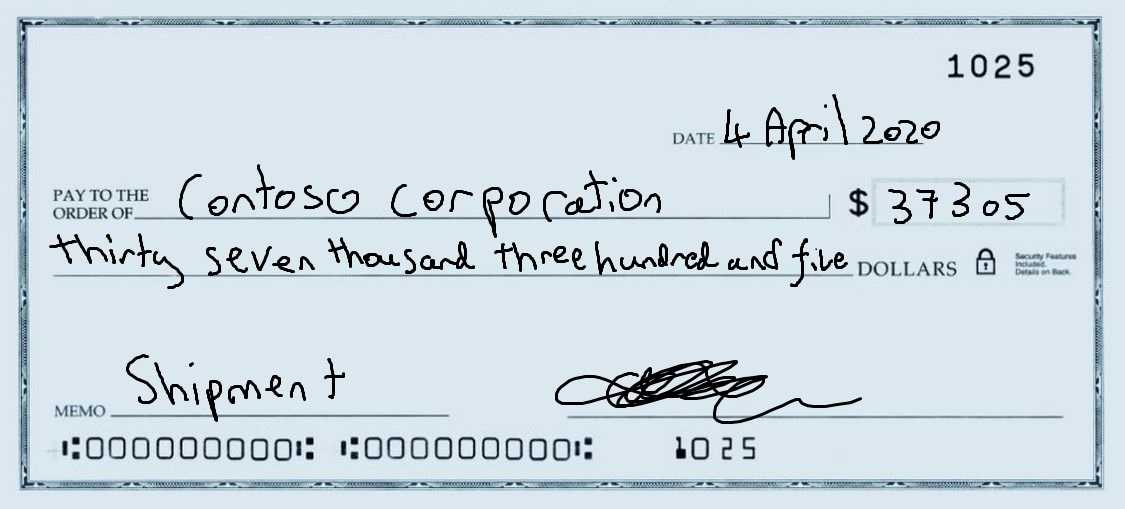 1025
DATE 4 April 2020
PAY TO THE ORDER OF Contosco Corporation $ 37305
thirty seven thousand three hundred and five DOLLARS Security Features Included. Details on Back.
MEMO Shipment
⑆000000000⑆ ⑆000000000⑆ 1025